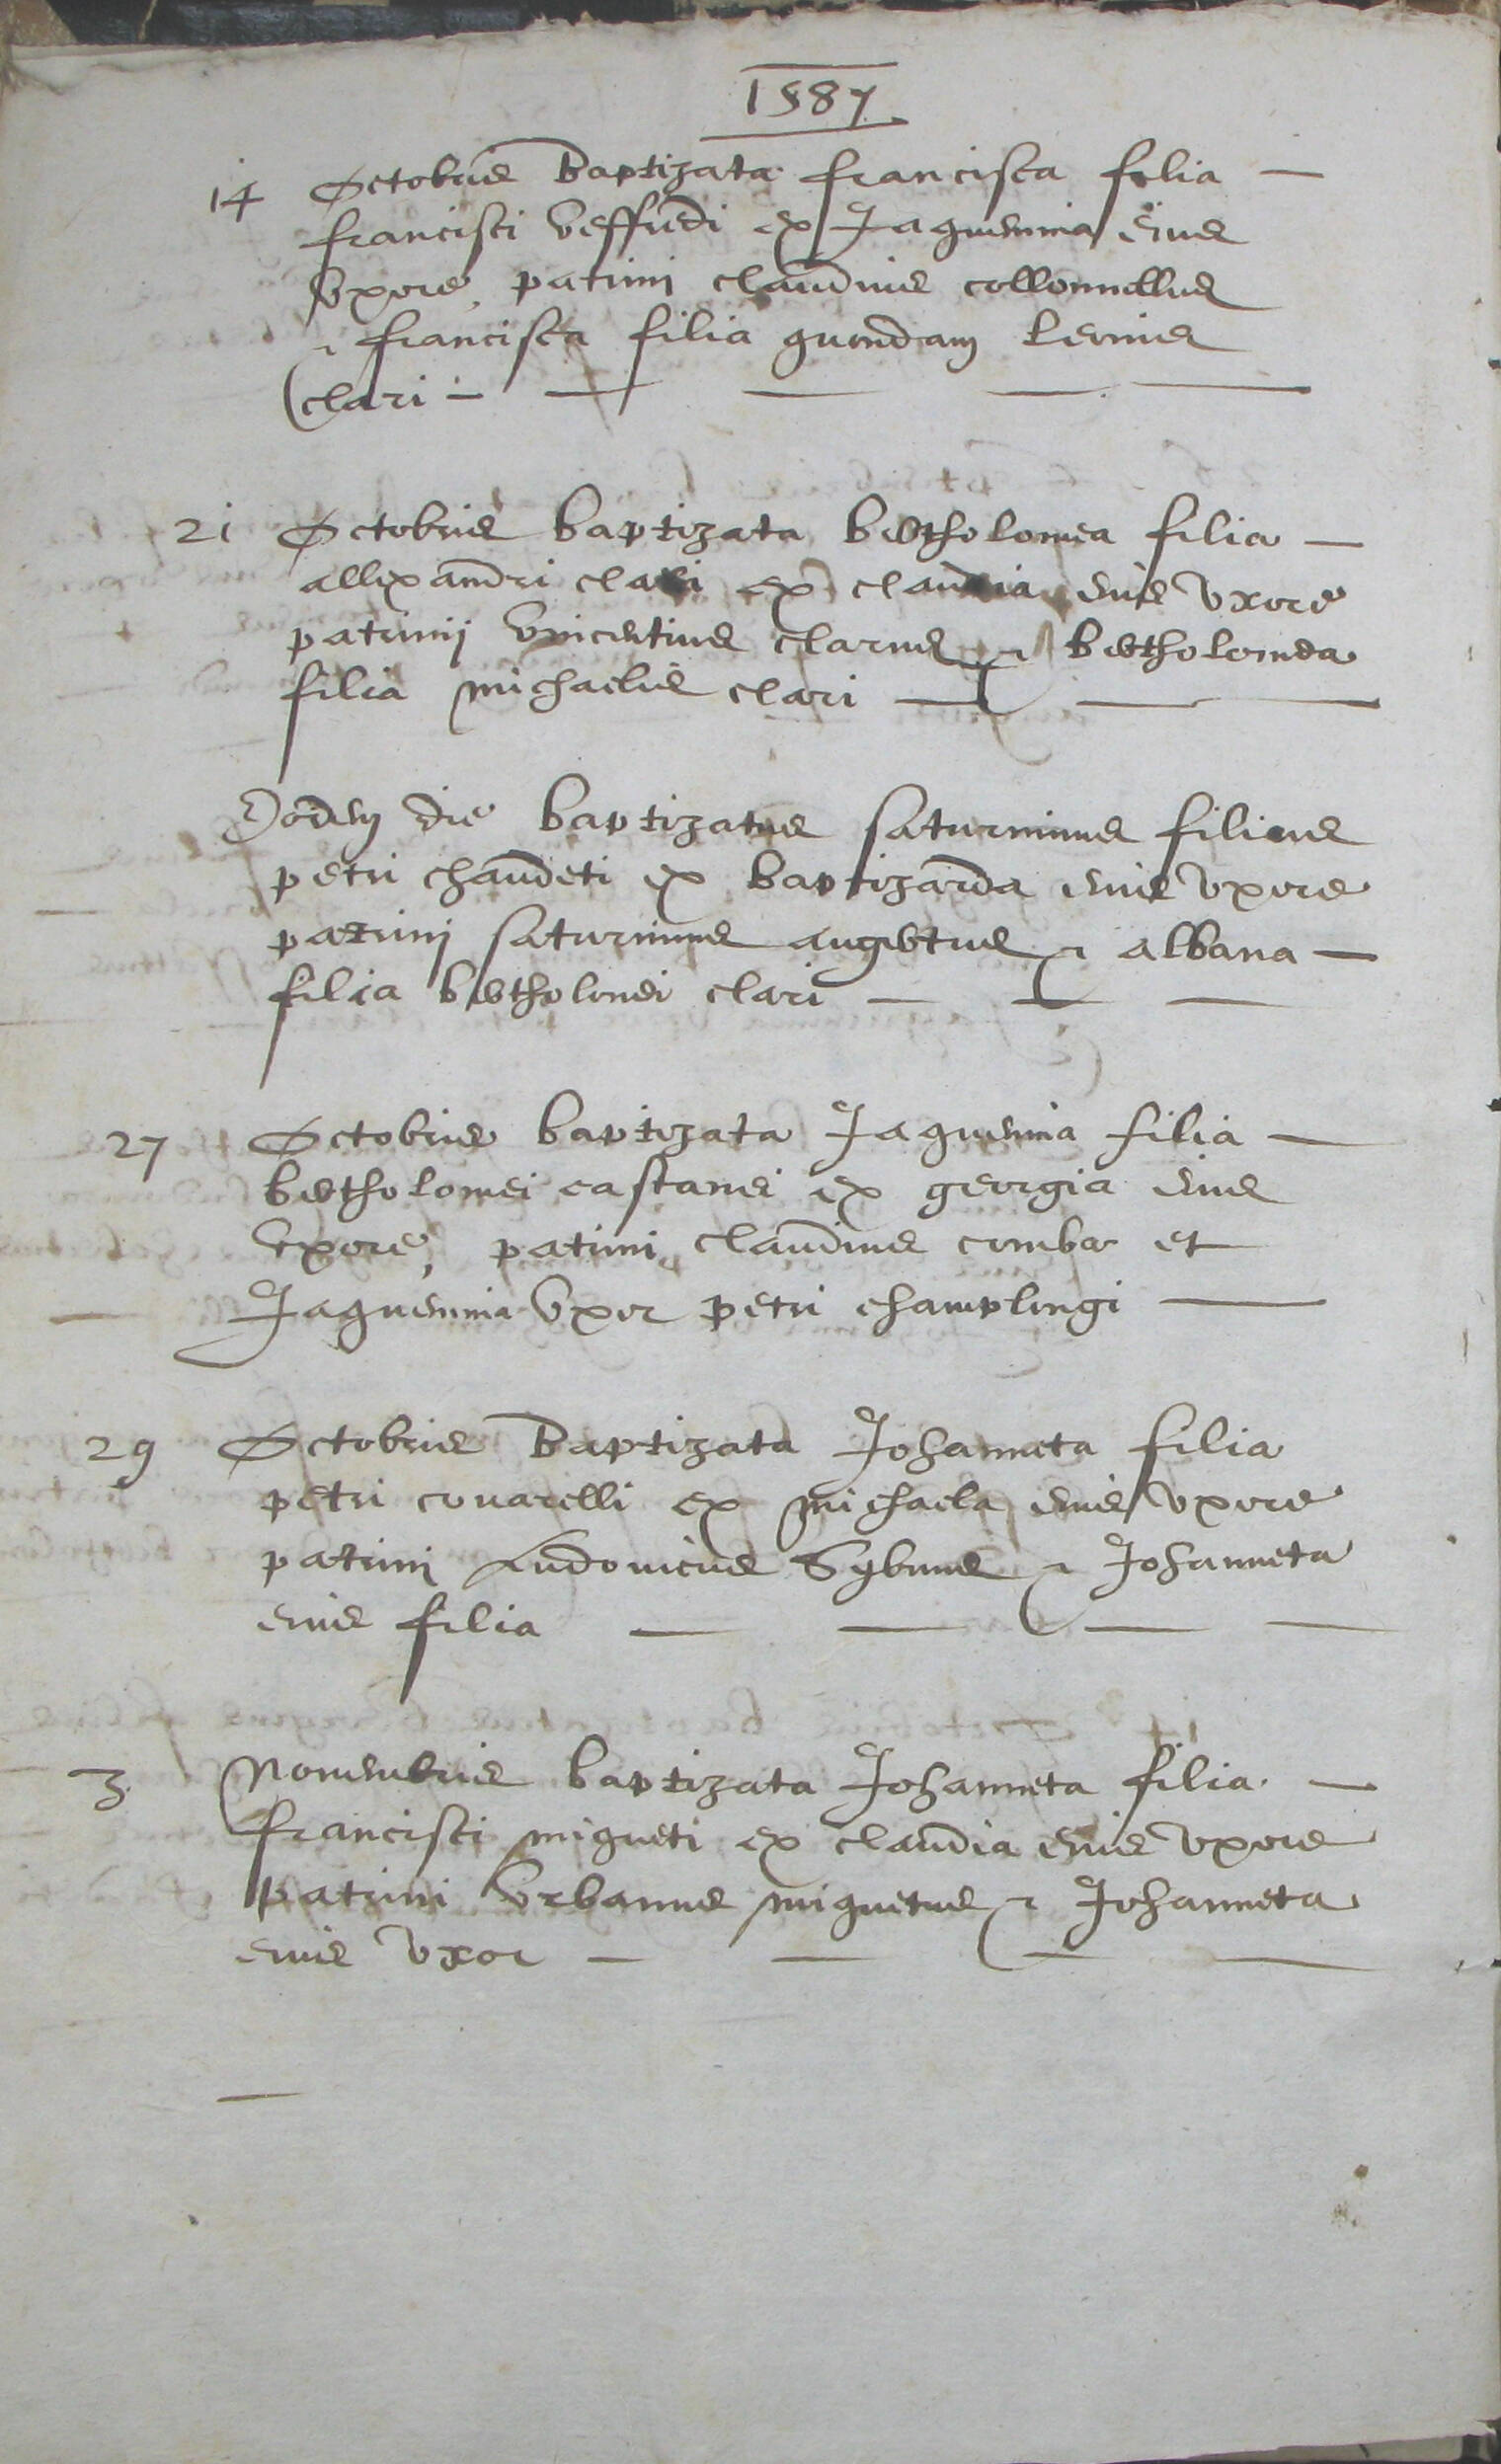 1587
14 Octobris baptizata francisca filia —
francisci veffredi ex Jaquemina eius
vxore, patrini claudius collonnellus
& francisca filia quondam leonis
clari — — — — —
21 Octobris baptizata bertholomea filia —
allixandri clari ex claudia eius vxore
patrinij vincentius clarus & bertholomea
filia michaelis clari — — —
Eodem die baptizatus saturninus filius
petri chaudeti ex baptizarda eius vxore
patrinij saturninus augertus & albana —
filia bertholomei clari — — —
27 Octobris baptizata Jaquemina filia —
bertholomei castanei ex georgia eius
vxore, patrini claudius comba et
Jaquemina vxor petri champlongi —
29 Octobris baptizata Johanneta filia
petri conarelli ex michaela eius vxore
patrini Ludouicus Sybuus & Johanneta
eius filia — — — —
3 Nouembris baptizata Johanneta filia. —
francisci migueti ex claudia eius vxore
patrini vrbanus miguetus & Johanneta
eius vxor — — — —